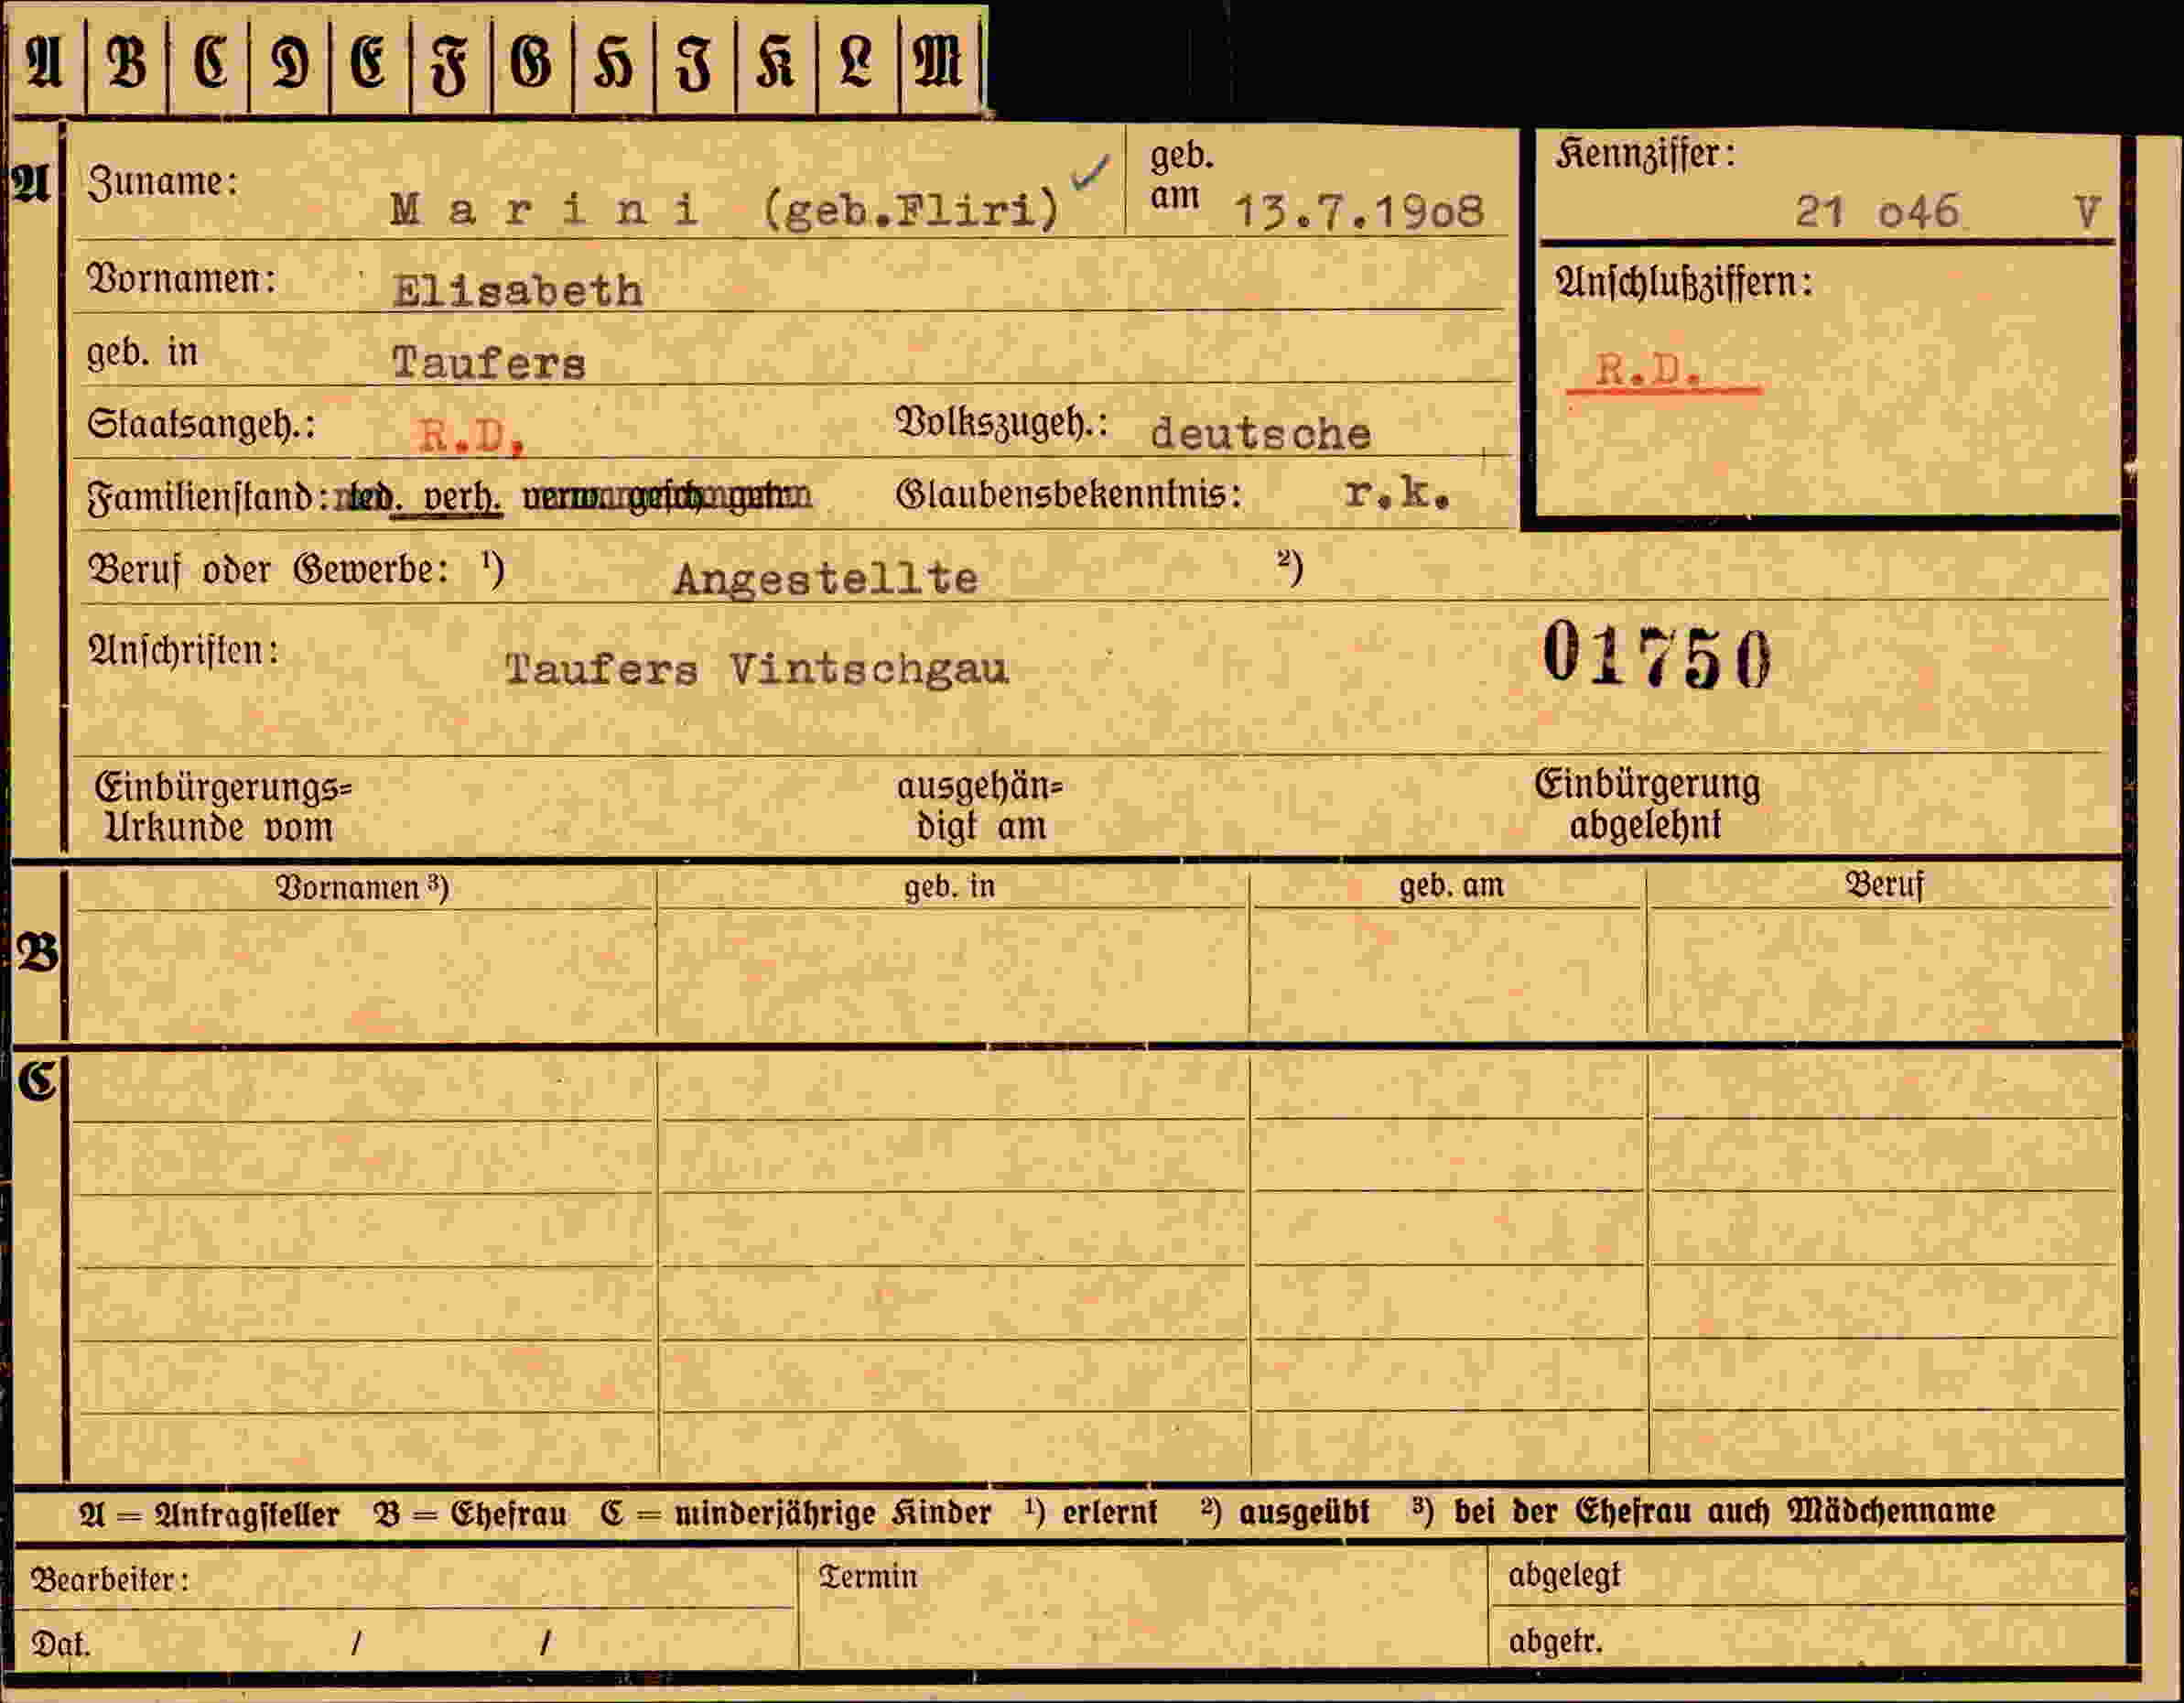 A B C D E F G H I K L M
A Zuname: Marini (geb.Fliri) geb. am 13.7.19o8 Kennziffer: 21 o46 V
Vornamen: Elisabeth Anschlußziffern:
geb. in Taufers R.D.
Staatsangeh.: R.D. Volkszugeh.: deutsche
Familienstand: led. verh. Glaubensbekenntnis: r.k.
Beruf oder Gewerbe: ¹) Angestellte ²)
Anschriften: Taufers Vintschgau 01750
Einbürgerungs= ausgehän= Einbürgerung
Urkunde vom digt am abgelehnt
Vornamen ³) geb. in geb. am Beruf
B
C
A = Antragsteller B = Ehefrau C = minderjährige Kinder ¹) erlernt ²) ausgeübt ³) bei der Ehefrau auch Mädchenname
Bearbeiter: Termin abgelegt
Dat. / / abgetr.